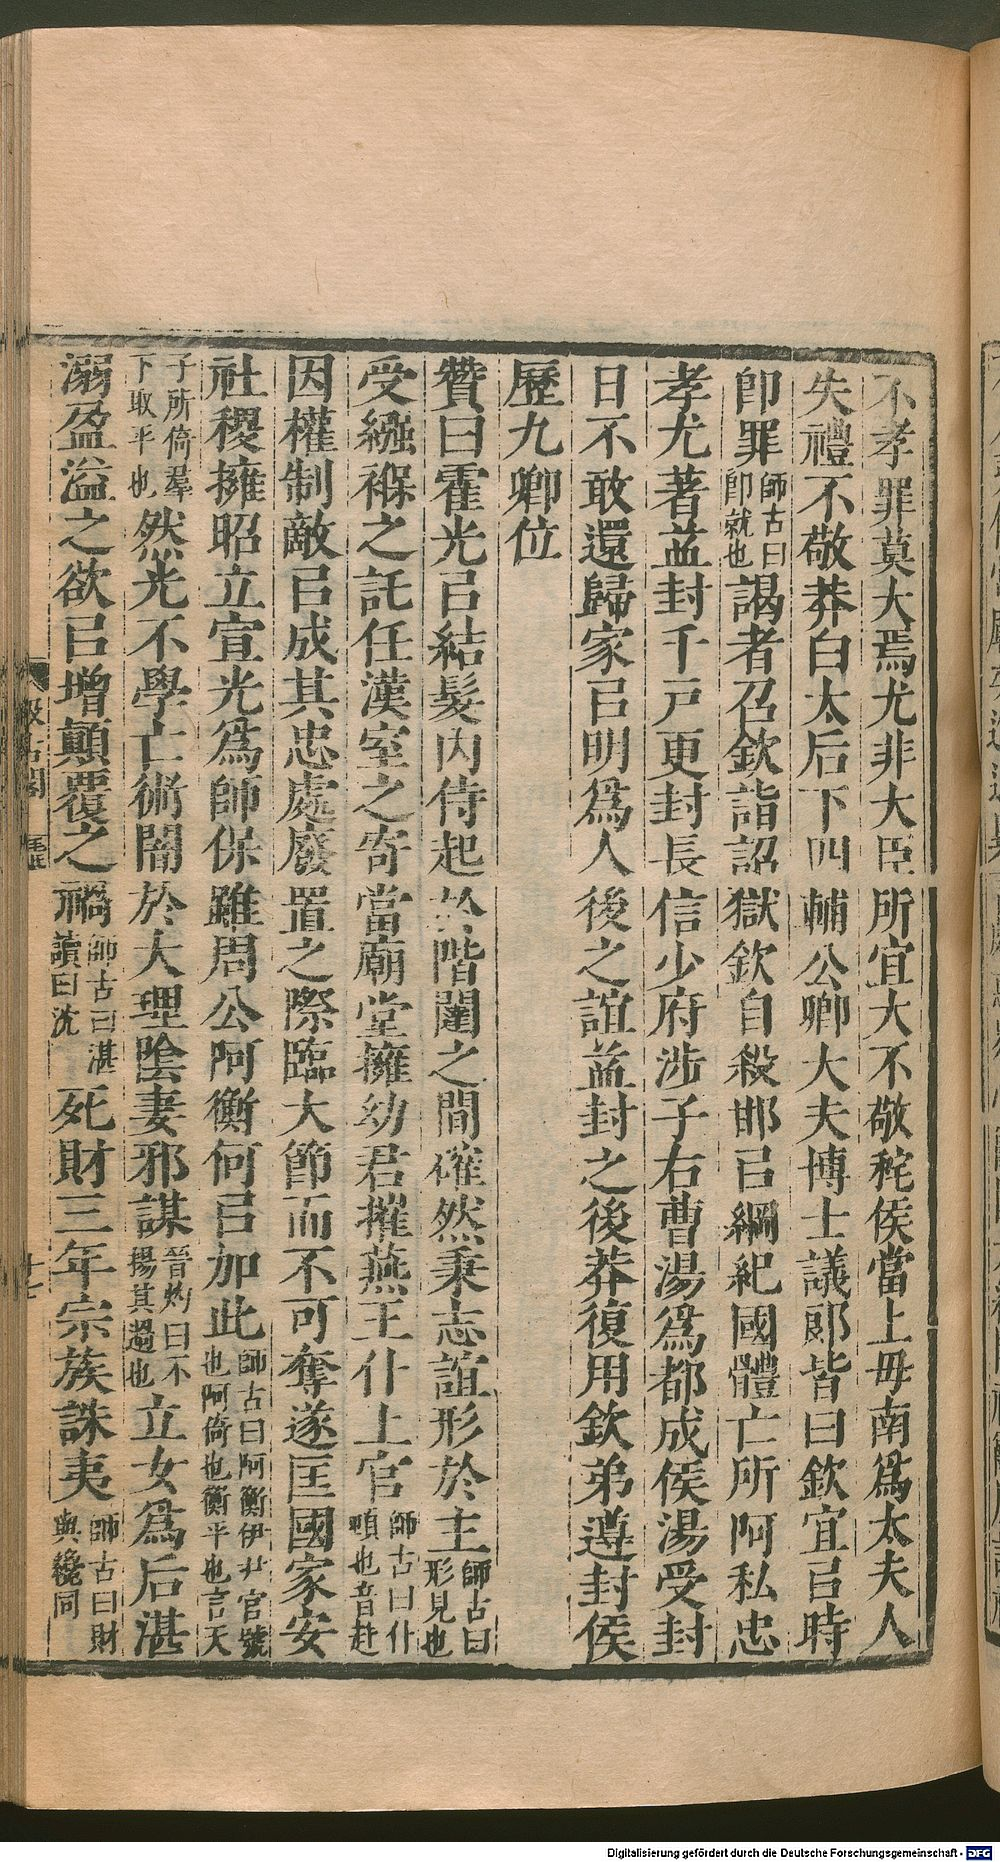 不孝罪莫大焉尤非大臣所宜大不敬秺侯當上毋南爲太夫人
失禮不敬莽白太后下四輔公卿大夫博士議郎皆曰欽宜㠯時
卽罪師古曰卽就也謁者召欽詣詔獄欽自殺邯㠯綱紀國體亡所阿私忠
孝尤著益封千戸更封長信少府涉子右曹湯爲都成侯湯受封
日不敢還歸家㠯明爲人後之誼益封之後莽復用欽弟遵封侯
歷九卿位
贊曰霍光㠯結髮內侍起於階闥之間確然秉志誼形於主師古曰形見也
受繦褓之託任漢室之寄當廟堂擁幼君摧燕王仆上官師古曰仆頓也音赴
因權制敵㠯成其忠處廢置之際臨大節而不可奪遂匡國家安
社稷擁昭立宣光爲師保雖周公阿衡何㠯加此師古曰阿衡伊尹官號也阿倚也衡平也言天
子所倚羣下取平也然光不學亡術闇於大理陰妻邪謀晉灼曰不揚其過也立女爲后湛
溺盈溢之欲㠯增顛覆之禍師古曰湛讀曰沈死財三年宗族誅夷師古曰財與纔同
Digitalisierung gefördert durch die Deutsche Forschungsgemeinschaft - DFG